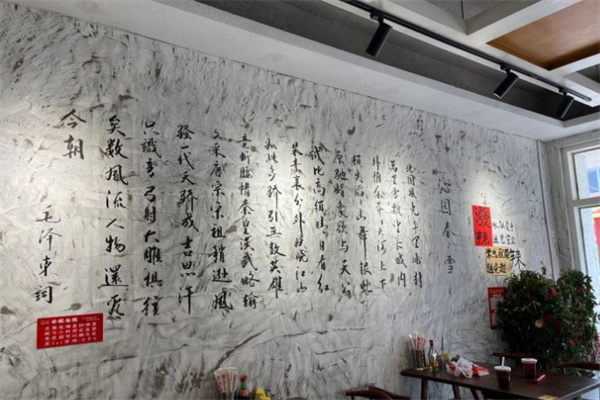 沁园春·雪
北国风光千里冰封
万里雪飘望长城内
外惟余莽莽大河上下
顿失滔滔山舞银蛇
原驰蜡象欲与天公
试比高须晴日看红
装素裹分外妖娆江山
如此多娇引无数英雄
竞折腰惜秦皇汉武略输
文采唐宗宋祖稍逊风
骚一代天骄成吉思汗
只识弯弓射大雕俱往
矣数风流人物还看
今朝
毛泽东词